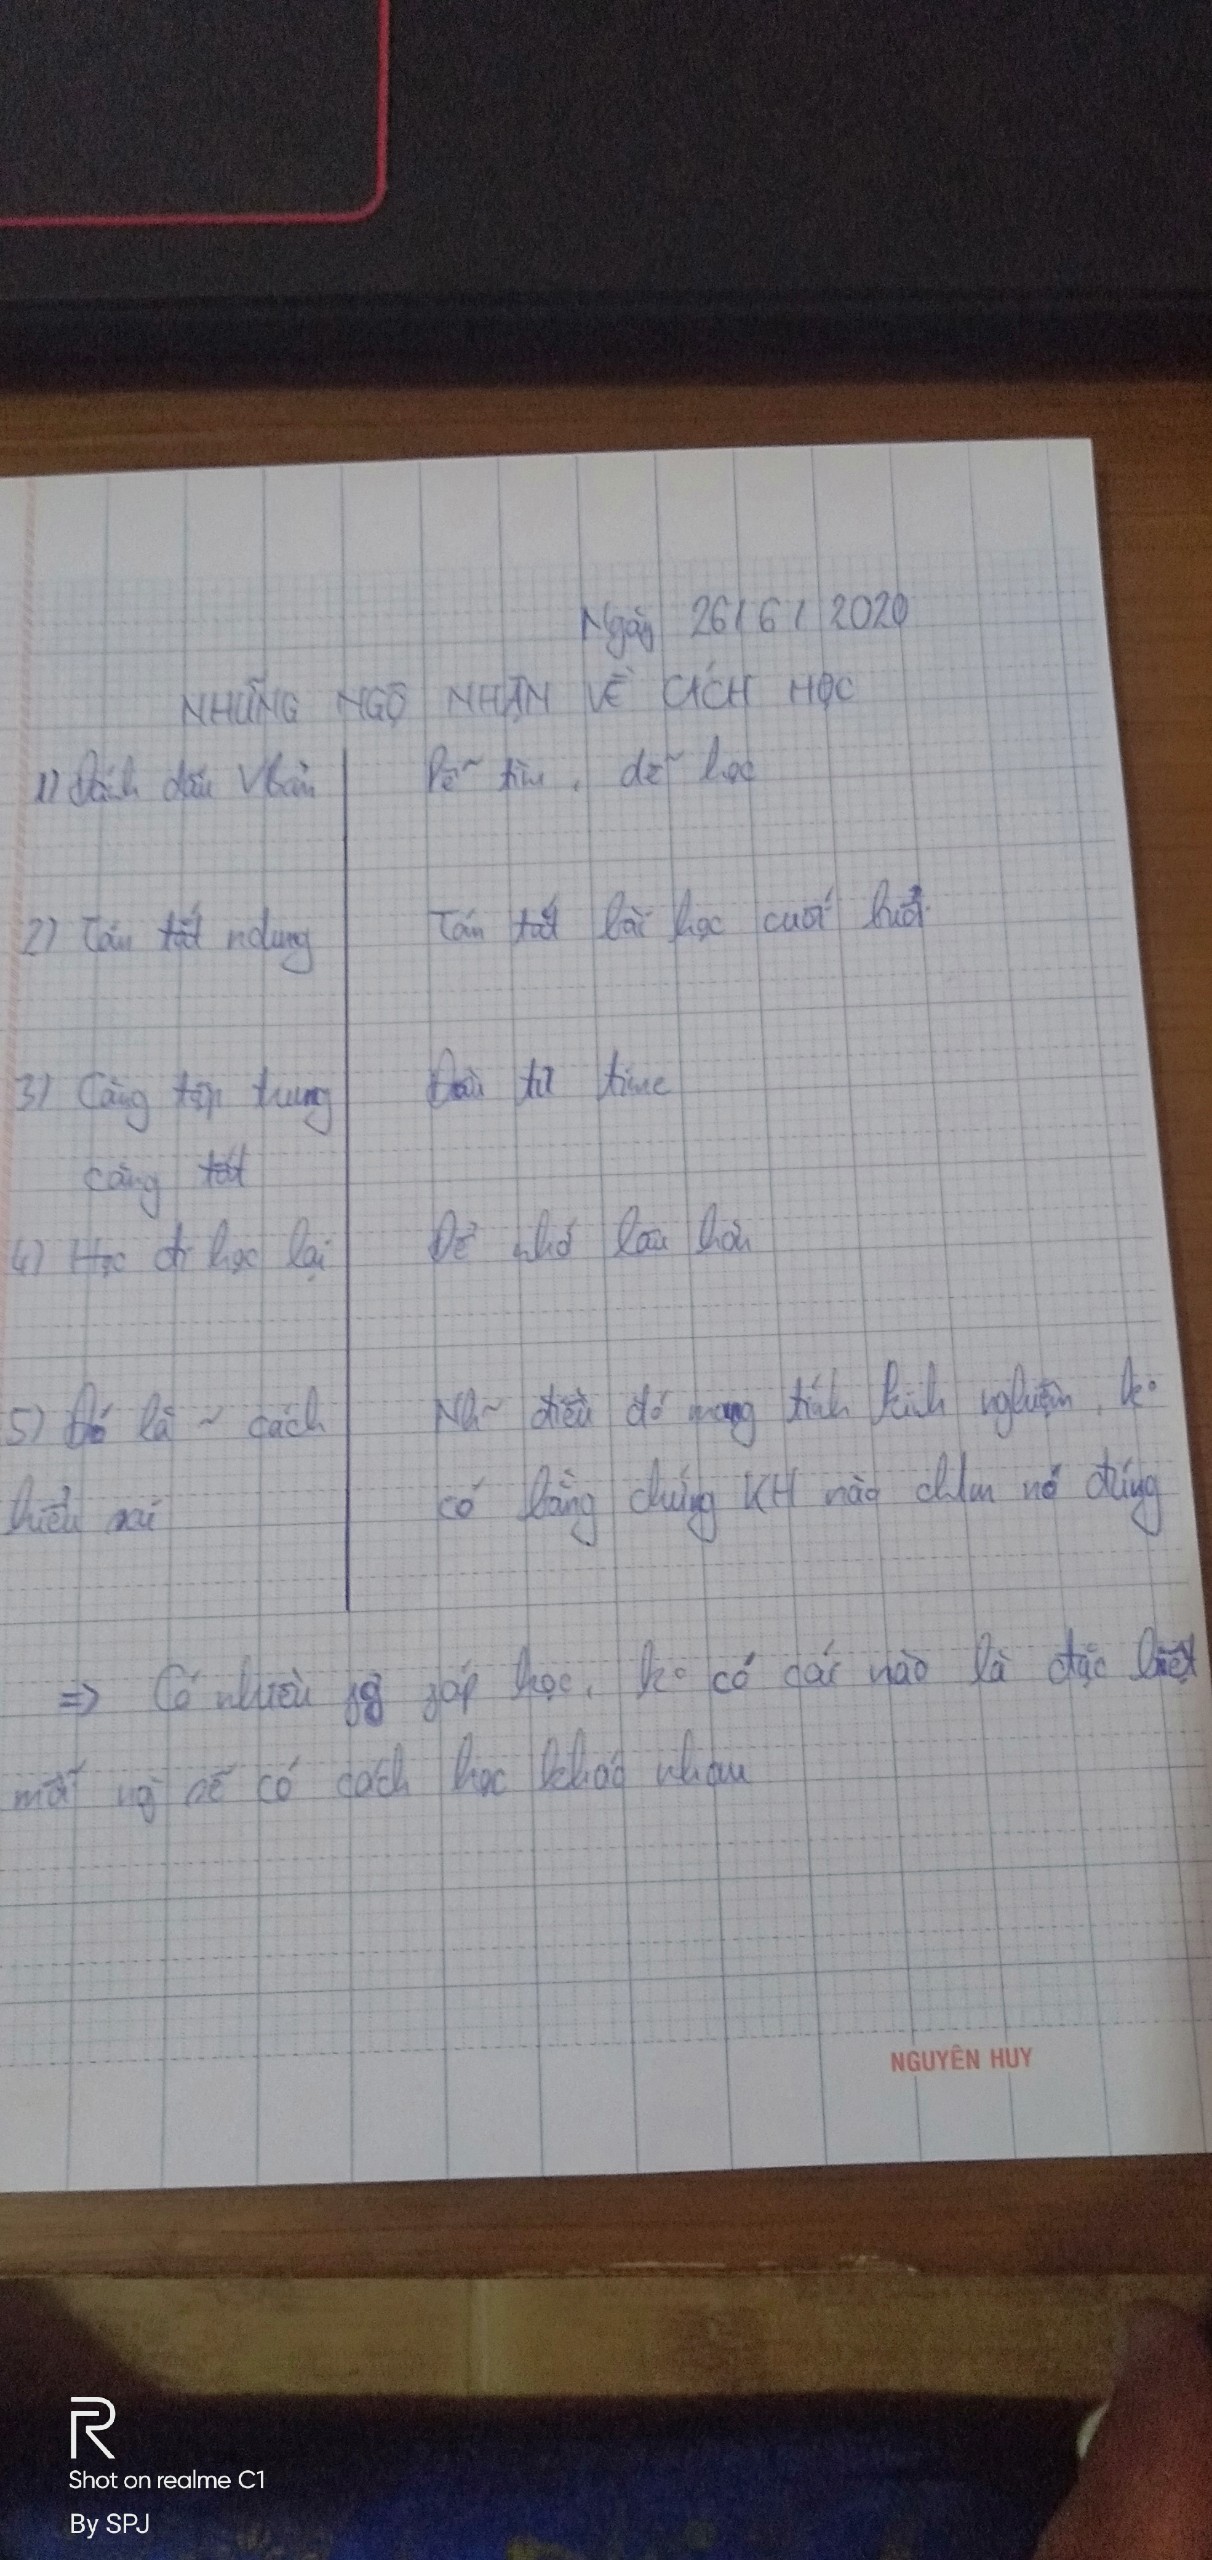 Ngày 26/6/2020
NHỮNG NGỘ NHẬN VỀ CÁCH HỌC
1) Đánh dấu Vbản
Dễ tìm, dễ học
2) Tóm tắt ndung
Tóm tắt bài học cuối buổi.
3) Càng tập trung
Đầu tư time
càng tốt
4) Học đi học lại
Để nhớ lâu hơn
5) Đó là ~ cách
Nh~ điều đó mang tính kinh nghiệm, ko
hiểu
có bằng chứng KH nào nó đúng
=> Có nhiều học, ko có cái nào là đặc biệt
mỗi ng sẽ có cách học khác nhau
NGUYÊN HUY
R
Shot on realme C1
By SPJ